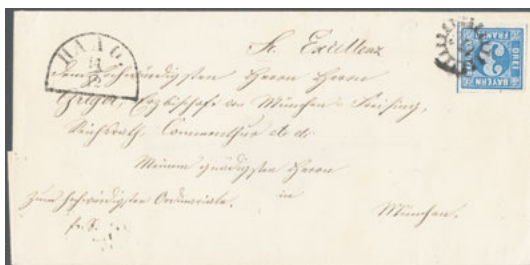 HAAG
14
12
BAYERN
DREI
FRANCO
3
Sr. Excellenz
dem Hochwürdigsten Herrn Herrn
Gregor, Erzbischofe von München-Freising,
Reichsrath, Commenthur
Meinem gnädigsten Herrn
in
Zum hochwürdigsten Ordinariate.
München.